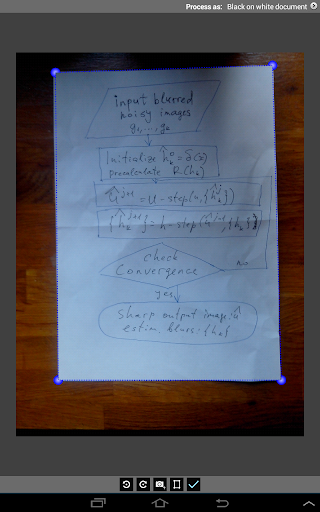 Process as: Black on white document
input blurred
noisy images
Initialize ĥₖ⁰ = δ(x)
precalculate R(hₖ)
û^{j+1} = u - step(
= h - step(
check
Convergence
No
yes
Sharp output image: û
estim. blurs: